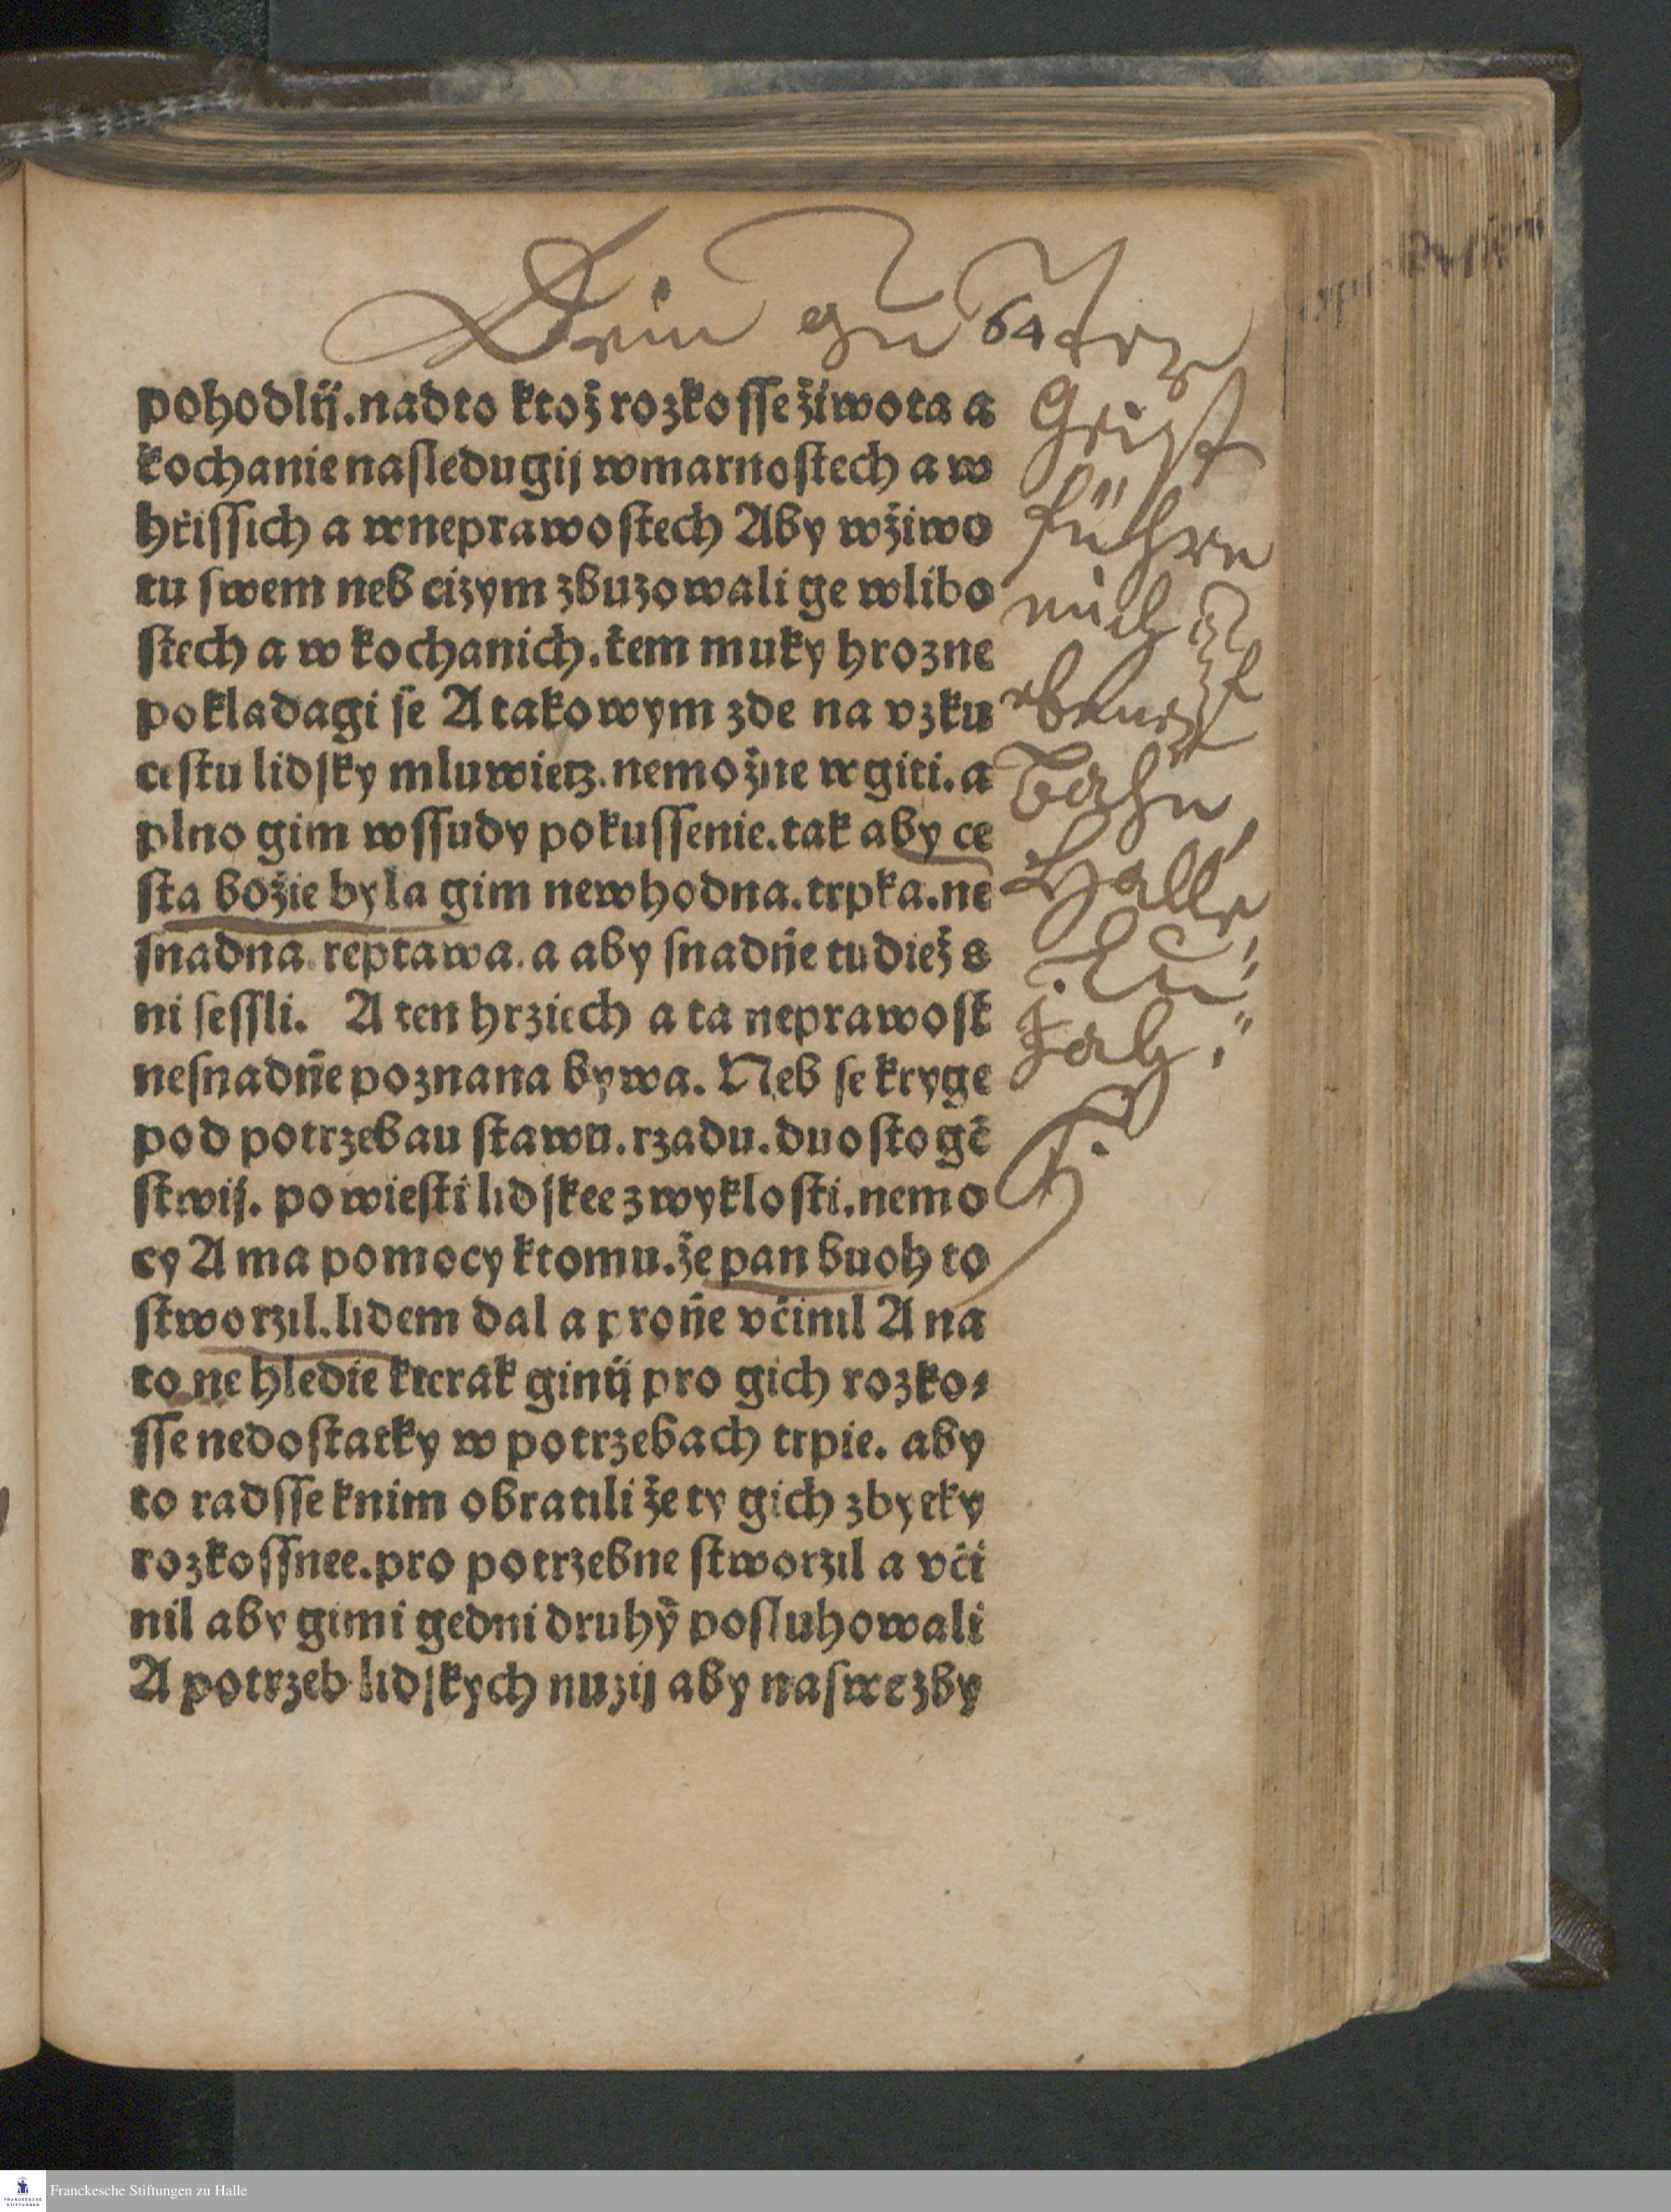 Dein guter
64
Geist
führe
mich auf
ebener
Bahn
Halle
pohodlij.nadto ktož rozkosse žiwota a
kochanie nasledugij wmarnostech a w
hřissich a wneprawostech Aby wžiwo
tu swem neb cizym zbuzowali ge wlibo
stech a w kochanich.tem muky hrozne
pokladagi se A takowym zde na vzku
cestu lidsky mluwietz.nemožne wgiti.a
plno gim wssudy pokussenie.tak aby ce
sta božie byla gim newhodna.trpka.ne
snadna.reptawa.a aby snadňe tudiež s
ni sessli. A ten hrziech a ta neprawost
nesnadňe poznana bywa. Neb se kryge
pod potrzebau stawu.rzadu.duostogē
stwij. powiesti lidskee zwyklosti.nemo
cy A ma pomocy ktomu.že pan buoh to
stworzil.lidem dal a proňe včinil A na
to ne hledie kterak ginij pro gich rozko⸗
sse nedostatky w potrzebach trpie. aby
to radsse knim obratili že ty gich zbytky
rozkossnee.pro potrzebne stworzil a vči
nil aby gimi gedni druhȳ posluhowali
A potrzeb lidskych nuzij aby naswe zby
Franckesche Stiftungen zu Halle